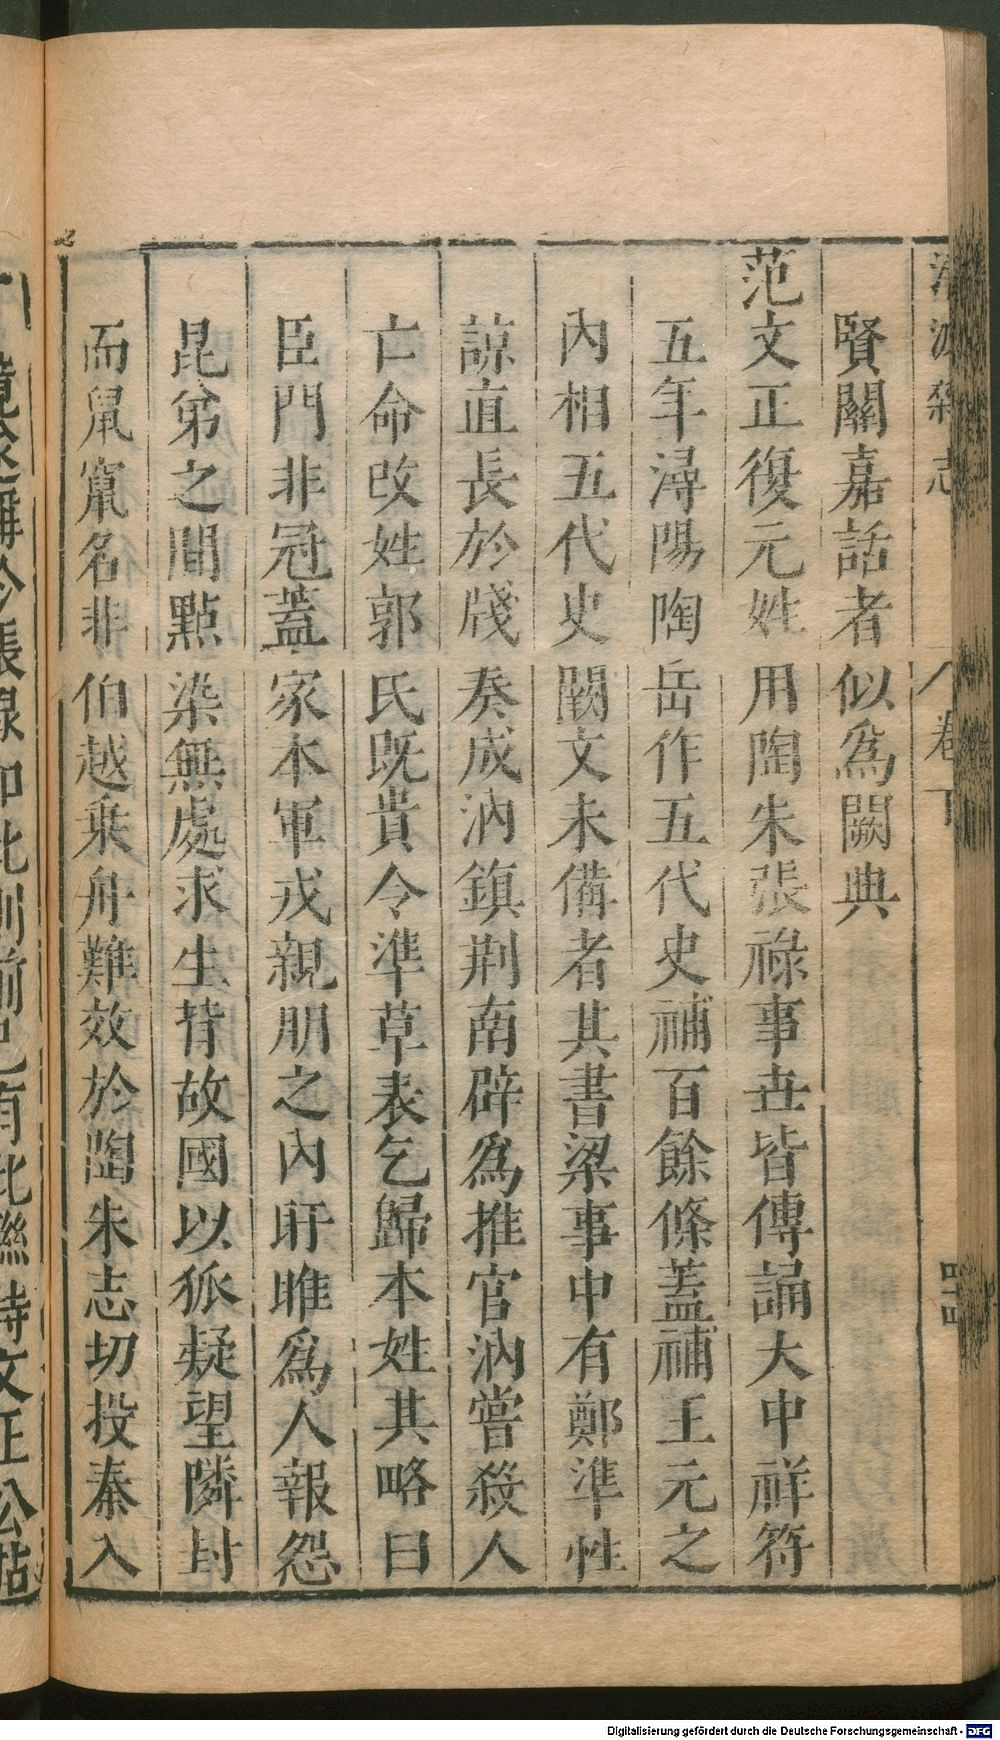 清波雜志 卷下 四
賢關嘉話者似爲闕典
范文正復元姓用陶朱張祿事世皆傳誦大中祥符
五年潯陽陶岳作五代史補百餘條蓋補王元之
內相五代史闕文未備者其書梁事中有鄭準性
諒直長於牋奏成汭鎮荆南辟爲推官汭嘗殺人
亡命改姓郭氏既貴令準草表乞歸本姓其略曰
臣門非冠蓋家本軍戎親朋之內盱睢爲人報怨
昆弟之間點染無處求生背故國以狐疑望隣封
而鼠竄名非伯越乗舟難效於陶朱志切投秦入
境遂稱於張祿 此 前 有此聯 文正公
Digitalisierung gefördert durch die Deutsche Forschungsgemeinschaft - DFG